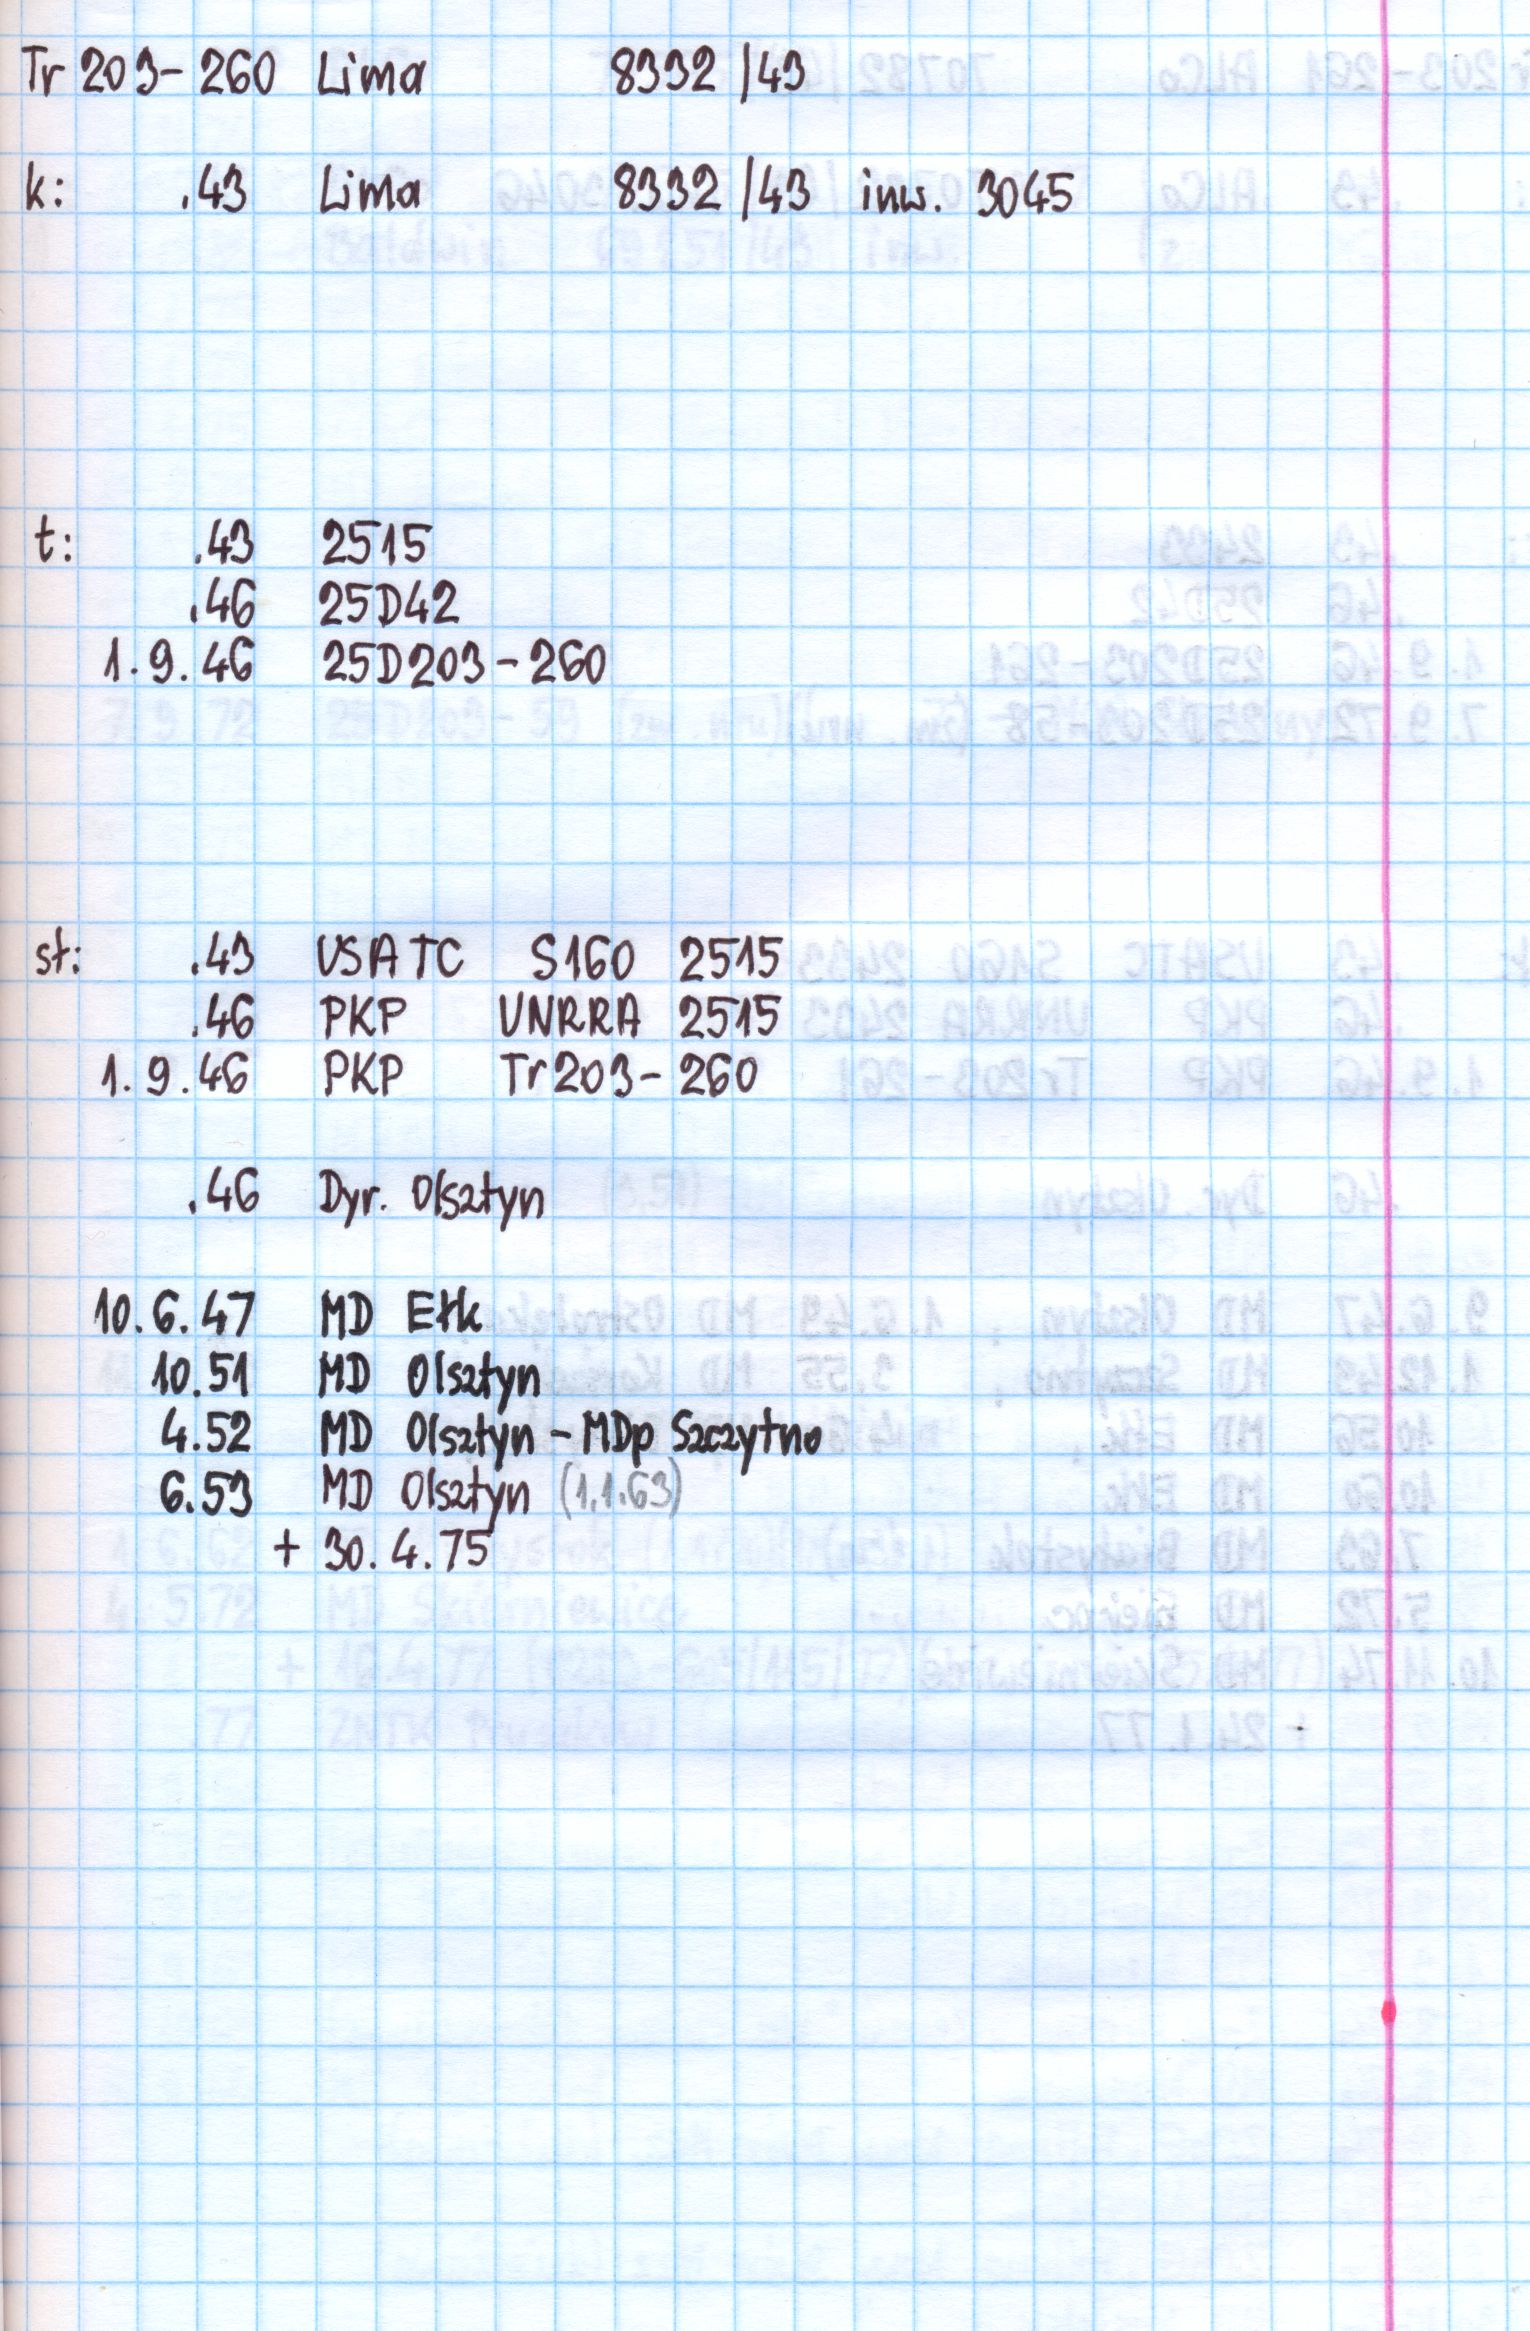 Tr 203-260 Lima 8332/43
k: .43 Lima 8332/43 inw. 3045
t: .43 2515
.46 25D42
1.9.46 25D203-260
st: .43 USATC S160 2515
.46 PKP UNRRA 2515
1.9.46 PKP Tr203-260
.46 Dyr. Olsztyn
10.6.47 MD Ełk
10.51 MD Olsztyn
4.52 MD Olsztyn - MDp Szczytno
6.53 MD Olsztyn (1.1.63)
+ 30.4.75